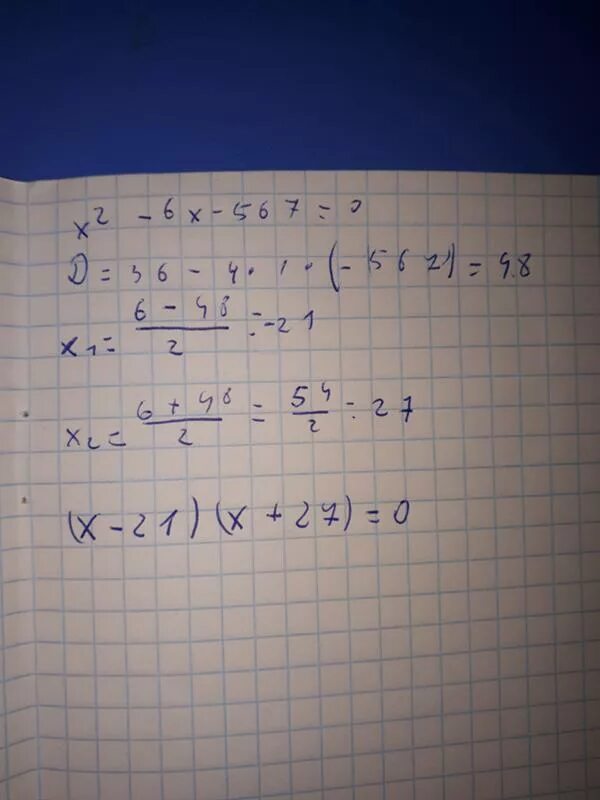 x² - 6x - 567 = 0
D = 36 - 4 · 1 · (- 567) = 48
x₁ = (6 - 48)/2 = -21
x₂ = (6 + 48)/2 = 54/2 = 27
(x - 21) (x + 27) = 0